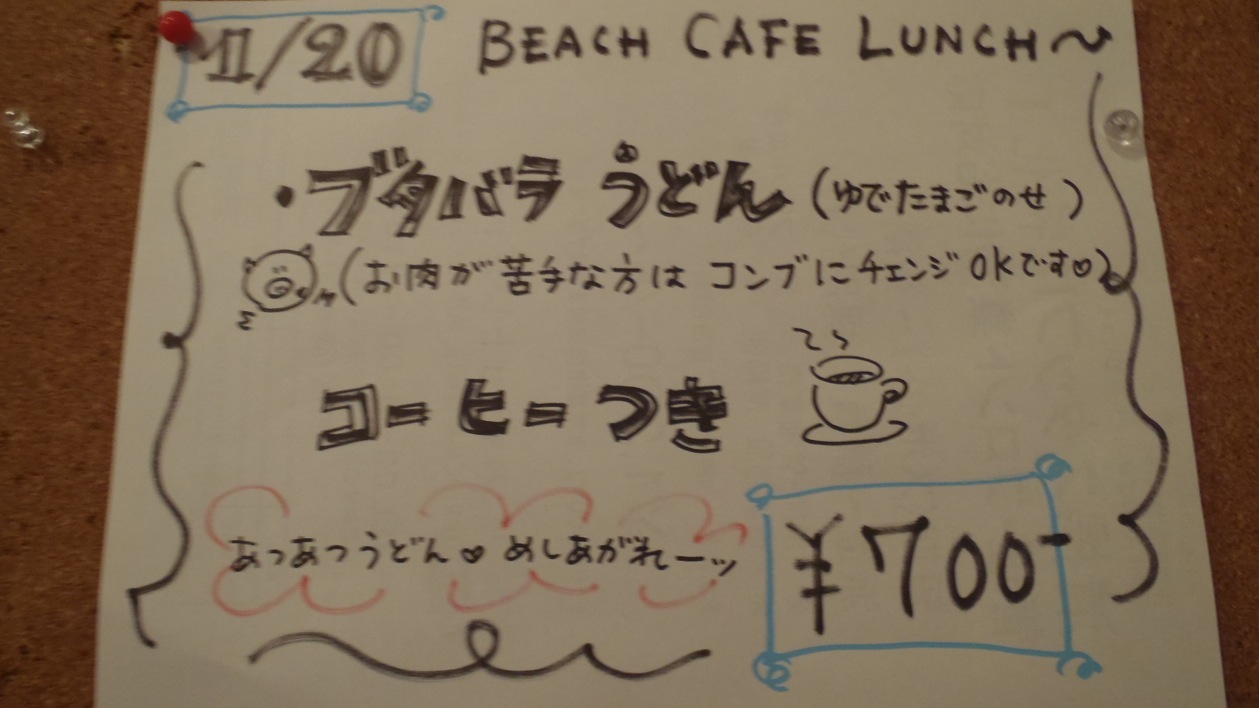 1/20 BEACH CAFE LUNCH〜
・ブタバラ うどん (ゆでたまごのせ)
(お肉が苦手な方は コンブにチェンジOKです♡)
コーヒーつき
あつあつうどん♡ めしあがれーッ
¥700-